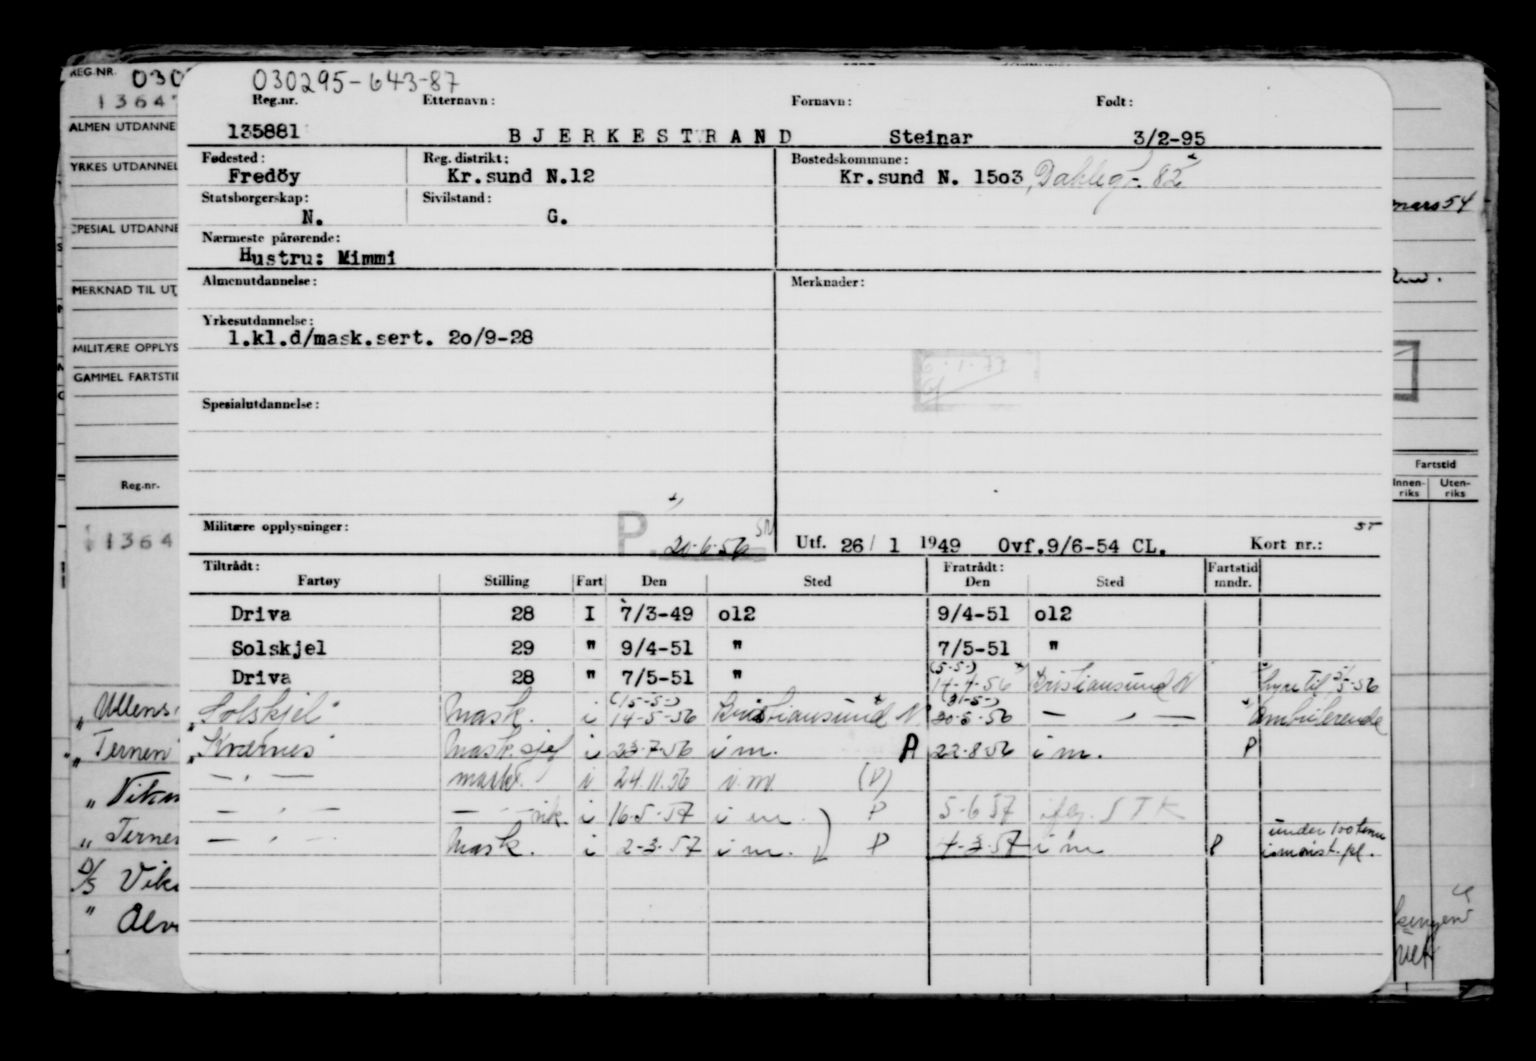 REG.NR. 030
1364
ALMEN UTDANNE
YRKES UTDANNEL
SPESIAL UTDANNE
MERKNAD TIL UT
MILITÆRE OPPLYS
GAMMEL FARTSTID
Reg.nr.
1364
030295-643-87
Reg.nr. Etternavn: Fornavn: Født:
135881 BJERKESTRAND Steinar 3/2-95
Fødested: Reg. distrikt: Bostedskommune:
Fredöy Kr.sund N.12 Kr.sund N. 15o3, Dahlegt. 82
Statsborgerskap: Sivilstand:
N. G.
Nærmeste pårørende:
Hustru: Mimmi
Almenutdannelse: Merknader:
Yrkesutdannelse:
1.kl.d/mask.sert. 2o/9-28
Spesialutdannelse:
Militære opplysninger: P. 20-6-56 Utf. 26/ 1 1949 Ovf.9/6-54 CL. Kort nr.:
Tiltrådt: Fratrådt: Fartstid
Fartøy Stilling Fart Den Sted Den Sted mndr.
Driva 28 I 7/3-49 o12 9/4-51 o12
Solskjel 29 " 9/4-51 " 7/5-51 "
Driva 28 " 7/5-51 " (5-5-) 14-4-56 Kristiansund N
"Solskjel" Mask. i (15-5-) 14-5-56 Kristiansund N. (31-5-) 30-5-56 — " — Ambulerende
"Kvernes" Mask.sjef i 23-7-56 i m. A 22-8-56 i m. P
— " — mask. i 24.11.56 i m. (P)
— " — — " — vik. i 16-5-57 i m. P 5-6-57 iflg. STK
— " — Mask. i 2-3-57 i m. P 4-3-57 i m P under 100 tonn
Fartstid
Innen-riks Uten-riks
mars 54
" Ternen
D/S Vik